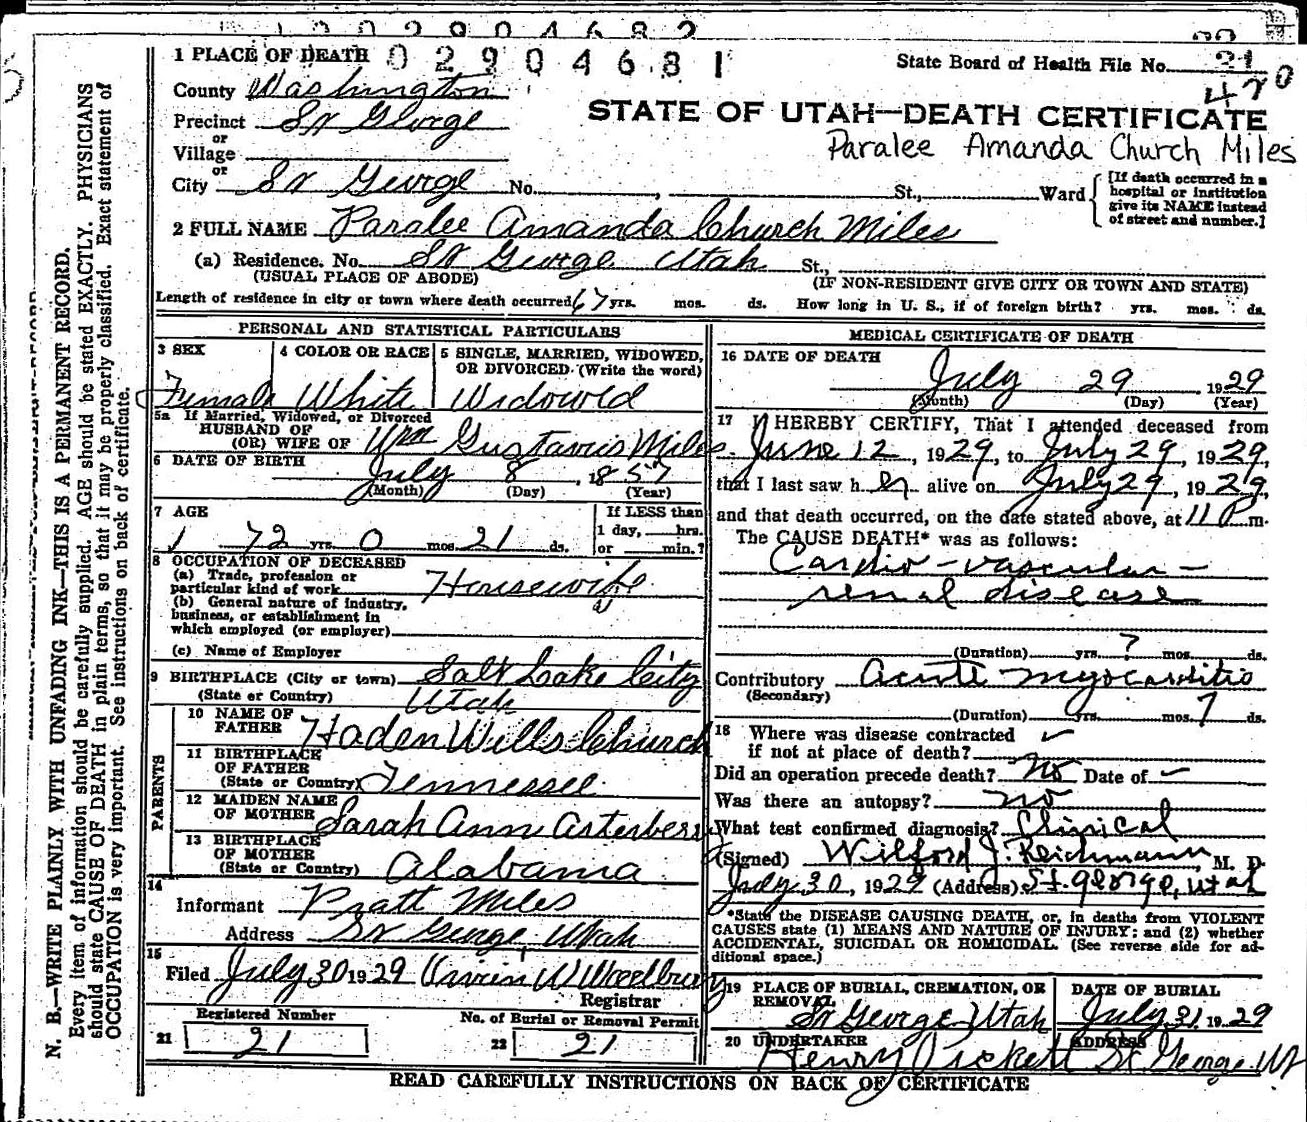 02904682
1 PLACE OF DEATH 02904681
State Board of Health File No. 21
470
County Washington
STATE OF UTAH—DEATH CERTIFICATE
Precinct St George
or
Paralee Amanda Church Miles
Village
or
City St George No. , St., Ward
[If death occurred in a
hospital or institution
give its NAME instead
of street and number.]
2 FULL NAME Paralee Amanda Church Miles
(a) Residence. No. St George Utah St.,
(USUAL PLACE OF ABODE) (IF NON-RESIDENT GIVE CITY OR TOWN AND STATE)
Length of residence in city or town where death occurred 67 yrs. mos. ds. How long in U. S., if of foreign birth? yrs. mos. ds.
PERSONAL AND STATISTICAL PARTICULARS
3 SEX 4 COLOR OR RACE 5 SINGLE, MARRIED, WIDOWED,
OR DIVORCED (Write the word)
Female White Widowed
5a If Married, Widowed, or Divorced
HUSBAND OF
(OR) WIFE OF Wm Gustavus Miles
6 DATE OF BIRTH July 8, 1857
(Month) (Day) (Year)
7 AGE If LESS than
1 day, hrs.
72 yrs. 0 mos. 21 ds. or min.?
8 OCCUPATION OF DECEASED
(a) Trade, profession or
particular kind of work Housewife
(b) General nature of industry,
business, or establishment in
which employed (or employer)
(c) Name of Employer
9 BIRTHPLACE (City or town) Salt Lake City
(State or Country) Utah
PARENTS
10 NAME OF
FATHER Haden Wells Church
11 BIRTHPLACE
OF FATHER
(State or Country) Tennessee
12 MAIDEN NAME
OF MOTHER Sarah Ann Arterberry
13 BIRTHPLACE
OF MOTHER
(State or Country) Alabama
14
Informant Pratt Miles
Address St George, Utah
15
Filed July 30 1929 Orvin W Woodbury
Registrar
Registered Number No. of Burial or Removal Permit
21 21 22 21
MEDICAL CERTIFICATE OF DEATH
16 DATE OF DEATH
July 29 1929
(Month) (Day) (Year)
17 I HEREBY CERTIFY, That I attended deceased from
June 12, 1929, to July 29, 1929,
that I last saw her alive on July 29, 1929,
and that death occurred, on the date stated above, at 11 P m.
The CAUSE DEATH* was as follows:
Cardio-vascular-
renal disease
(Duration) yrs. ? mos. ds.
Contributory Acute myocarditis
(Secondary)
(Duration) yrs. mos. 7 ds.
18 Where was disease contracted
if not at place of death?
Did an operation precede death? No Date of
Was there an autopsy? no
What test confirmed diagnosis? Clinical
(Signed) Wilford J. Reichmann, M. D.
July 30, 1929 (Address) St. George, Utah
*State the DISEASE CAUSING DEATH, or, in deaths from VIOLENT
CAUSES state (1) MEANS AND NATURE OF INJURY; and (2) whether
ACCIDENTAL, SUICIDAL OR HOMICIDAL. (See reverse side for ad-
ditional space.)
19 PLACE OF BURIAL, CREMATION, OR
REMOVAL
DATE OF BURIAL
St George Utah July 31 1929
20 UNDERTAKER ADDRESS
Henry Pickett St. George Ut
READ CAREFULLY INSTRUCTIONS ON BACK OF CERTIFICATE
N. B.—WRITE PLAINLY WITH UNFADING INK—THIS IS A PERMANENT RECORD.
Every item of information should be carefully supplied. AGE should be stated EXACTLY. PHYSICIANS
should state CAUSE OF DEATH in plain terms, so that it may be properly classified. Exact statement of
OCCUPATION is very important. See instructions on back of certificate.